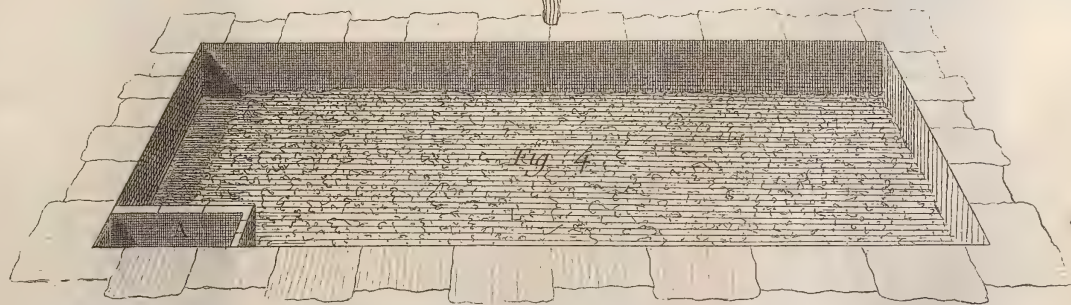 Fig. 4.
A